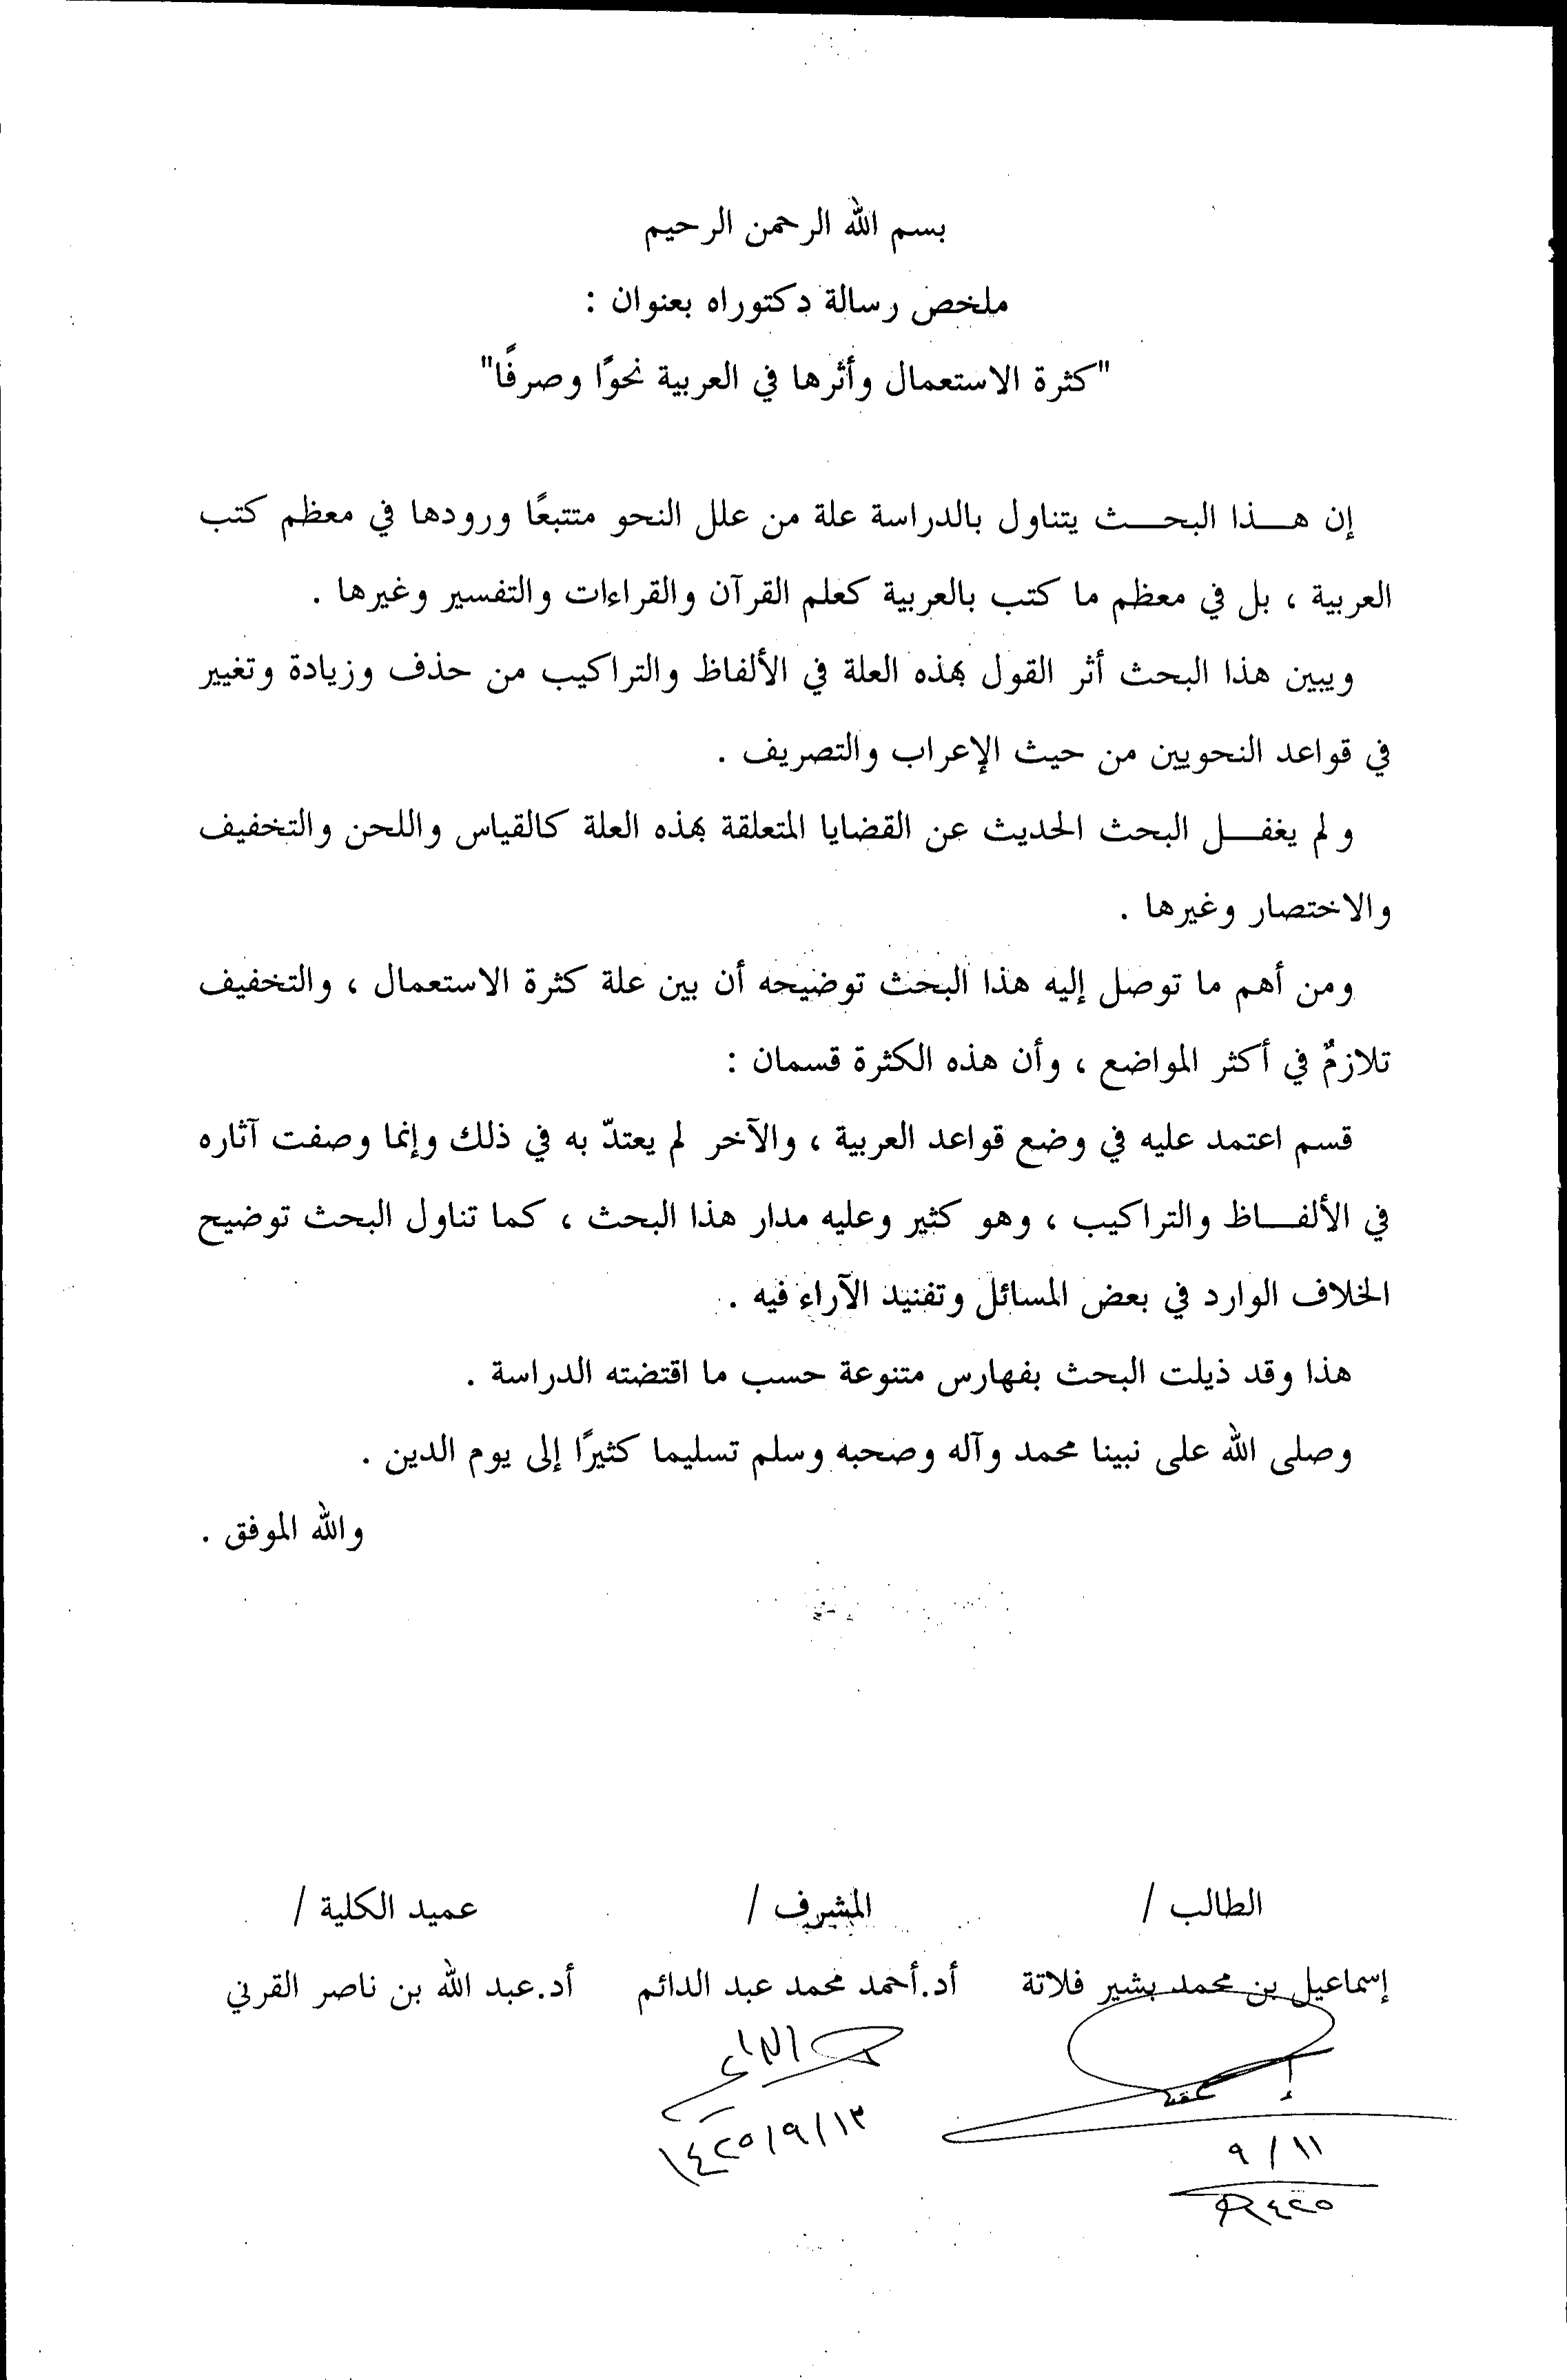 بسم الله الرحمن الرحيم
ملخص رسالة دكتوراه بعنوان :
"كثرة الاستعمال وأثرها في العربية نحوًا وصرفًا"
إن هـــذا البحـــث يتناول بالدراسة علة من علل النحو متتبعًا ورودها في معظم كتب
العربية ، بل في معظم ما كتب بالعربية كعلم القرآن والقراءات والتفسير وغيرها .
ويبين هذا البحث أثر القول بهذه العلة في الألفاظ والتراكيب من حذف وزيادة وتغيير
في قواعد النحويين من حيث الإعراب والتصريف .
و لم يغفـــل البحث الحديث عن القضايا المتعلقة بهذه العلة كالقياس واللحن والتخفيف
والاختصار وغيرها .
ومن أهم ما توصل إليه هذا البحث توضيحه أن بين علة كثرة الاستعمال ، والتخفيف
تلازمٌ في أكثر المواضع ، وأن هذه الكثرة قسمان :
قسم اعتمد عليه في وضع قواعد العربية ، والآخر لم يعتدّ به في ذلك وإنما وصفت آثاره
في الألفـــاظ والتراكيب ، وهو كثير وعليه مدار هذا البحث ، كما تناول البحث توضيح
الخلاف الوارد في بعض المسائل وتفنيد الآراء فيه .
هذا وقد ذيلت البحث بفهارس متنوعة حسب ما اقتضته الدراسة .
وصلى الله على نبينا محمد وآله وصحبه وسلم تسليما كثيرًا إلى يوم الدين .
والله الموفق .
الطالب / المشرف / عميد الكلية /
إسماعيل بن محمد بشير فلاتة أد.أحمد محمد عبد الدائم أد.عبد الله بن ناصر القرني
١٤٢٥/٩/١٣
١١ / ٩
١٤٢٥هـ